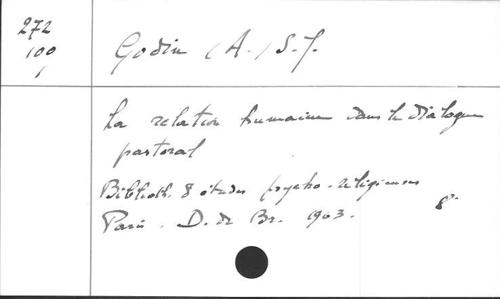 272
100
1
Godin (A.) S.J.
La relation humaine dans le dialogue
pastoral
Biblioth. d'études psycho-religieuses
Paris. D. de Br. 1963. 8°